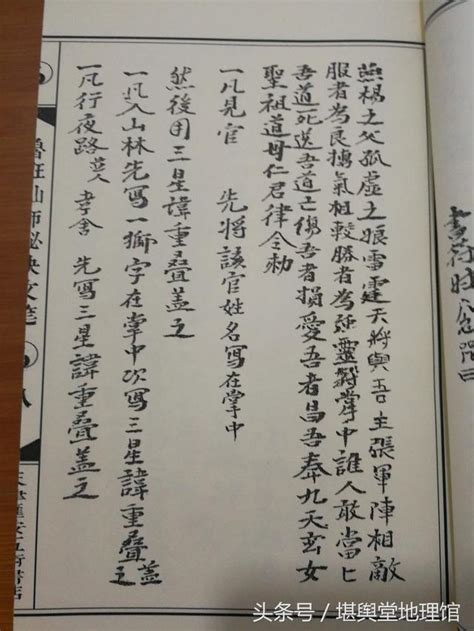 燕楊之父孤虛之娘雪霆天將與吾主張軍陣相敵
服者為良搏氣相較勝者為強靈掌中誰人敢當匕
吾道死送吾道亡傷吾者損愛吾者昌吾奉九天玄女
聖祖道母仁君律令勅
一凡見官 先將該官姓名寫在掌中
然後用三星諱重疊蓋之
一凡入山林先寫一獅字在掌中次寫三星諱重疊蓋之
一凡行夜路 先寫三星諱重疊蓋之
仙師秘訣文筆
八
头条号/堪舆堂地理馆